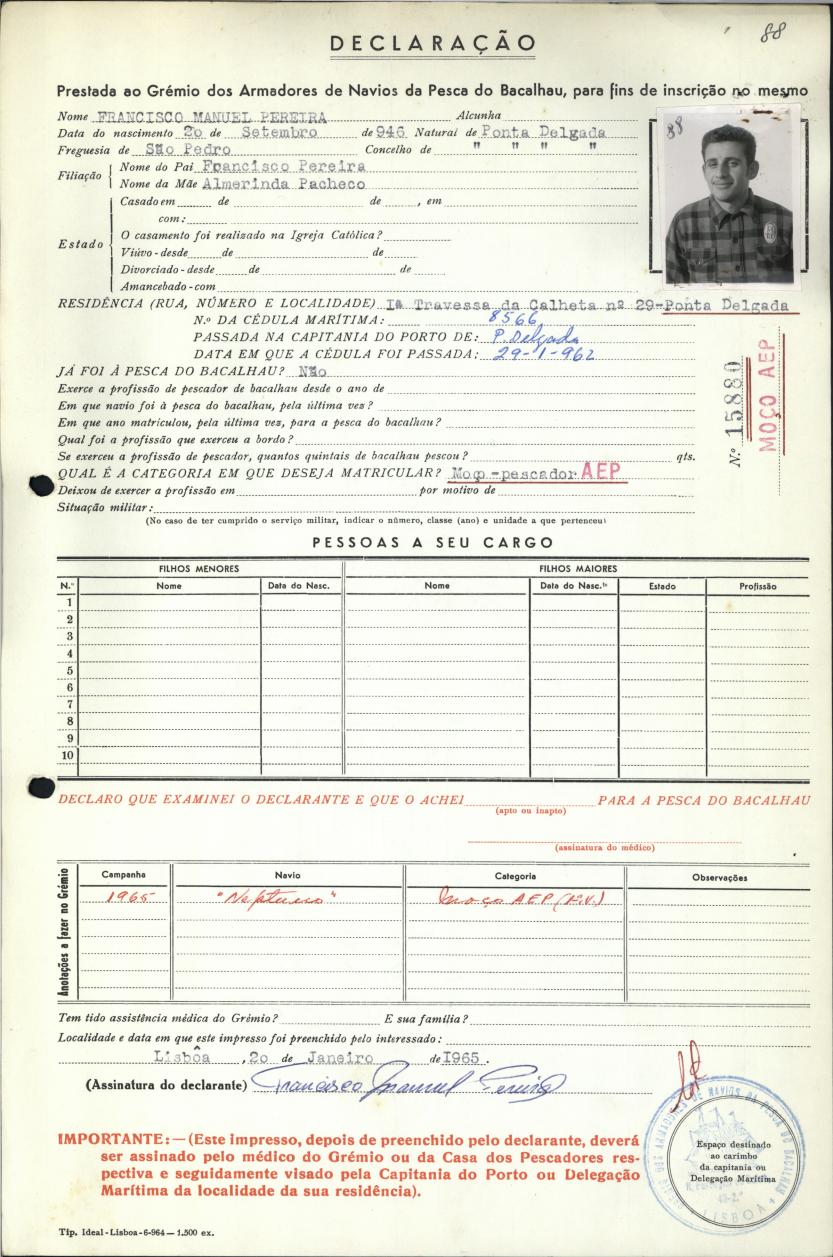 88
DECLARAÇÃO
Prestada ao Grémio dos Armadores de Navios da Pesca do Bacalhau, para fins de inscrição no mesmo
Nome FRANCISCO MANUEL PEREIRA Alcunha
Data do nascimento 20 de Setembro de 946 Natural de Ponta Delgada
Freguesia de São Pedro Concelho de " " " "
Filiação
Nome do Pai Francisco Pereira
Nome da Mãe Almerinda Pacheco
Estado
Casado em de de , em
com:
O casamento foi realizado na Igreja Católica?
Viúvo-desde de de
Divorciado-desde de de
Amancebado-com
88
RESIDÊNCIA (RUA, NÚMERO E LOCALIDADE) Iª Travessa da Calheta nº 29-Ponta Delgada
N.º DA CÉDULA MARÍTIMA: 8566
PASSADA NA CAPITANIA DO PORTO DE: P. Delgada
DATA EM QUE A CÉDULA FOI PASSADA: 29-1-962
JÁ FOI À PESCA DO BACALHAU? Não
Exerce a profissão de pescador de bacalhau desde o ano de
Em que navio foi à pesca do bacalhau, pela última vez?
Em que ano matriculou, pela última vez, para a pesca do bacalhau?
Qual foi a profissão que exerceu a bordo?
Se exerceu a profissão de pescador, quantos quintais de bacalhau pescou? qts.
QUAL É A CATEGORIA EM QUE DESEJA MATRICULAR? Moço-pescador AEP
Deixou de exercer a profissão em por motivo de
Situação militar:
(No caso de ter cumprido o serviço militar, indicar o número, classe (ano) e unidade a que pertenceu)
N.º 15880
MOÇO AEP
PESSOAS A SEU CARGO
FILHOS MENORES FILHOS MAIORES
N.º Nome Data do Nasc. Nome Data do Nasc.to Estado Profissão
1
2
3
4
5
6
7
8
9
10
DECLARO QUE EXAMINEI O DECLARANTE E QUE O ACHEI PARA A PESCA DO BACALHAU
(apto ou inapto)
(assinatura do médico)
Anotações a fazer no Grémio
Campanha Navio Categoria Observações
1965 "Neptuno" Moço AEP (1.ª V.)
Tem tido assistência médica do Grémio? E sua família?
Localidade e data em que este impresso foi preenchido pelo interessado:
Lisbôa , 20 de Janeiro de I965.
(Assinatura do declarante) Francisco Manuel Pereira
IMPORTANTE:—(Este impresso, depois de preenchido pelo declarante, deverá
ser assinado pelo médico do Grémio ou da Casa dos Pescadores res-
pectiva e seguidamente visado pela Capitania do Porto ou Delegação
Marítima da localidade da sua residência).
GRÉMIO DOS ARMADORES DE NAVIOS DA PESCA DO BACALHAU
LISBOA
Espaço destinado
ao carimbo
da capitania ou
Delegação Marítima
Tip. Ideal-Lisboa-6-964—1.500 ex.